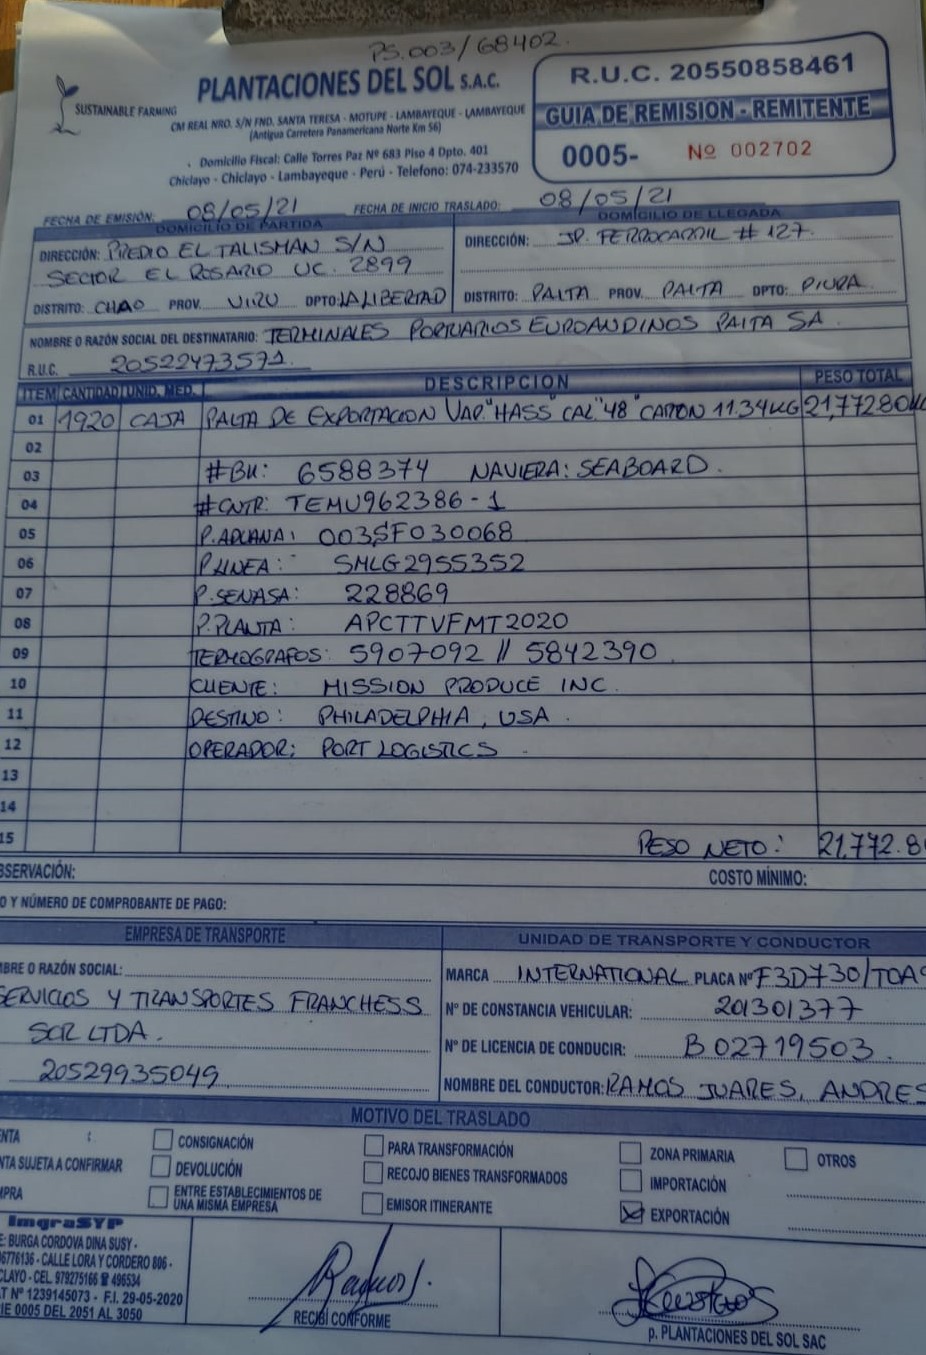 PS.003/68402.
SUSTAINABLE FARMING
PLANTACIONES DEL SOL S.A.C.
CM REAL NRO. S/N FND. SANTA TERESA - MOTUPE - LAMBAYEQUE - LAMBAYEQUE
(Antigua Carretera Panamericana Norte Km 56)
Domicilio Fiscal: Calle Torres Paz Nº 683 Piso 4 Dpto. 401
Chiclayo - Chiclayo - Lambayeque - Perú - Telefono: 074-233570
R.U.C. 20550858461
GUIA DE REMISION - REMITENTE
0005- Nº 002702
FECHA DE EMISIÓN: 08/05/21 FECHA DE INICIO TRASLADO: 08/05/21
DOMICILIO DE PARTIDA
DIRECCIÓN: PREDIO EL TALISMAN S/N
SECTOR EL ROSARIO UC. 2899
DISTRITO: CHAO PROV. VIRU DPTO: LA LIBERTAD
DOMICILIO DE LLEGADA
DIRECCIÓN: JR. FERROCARRIL # 127.
DISTRITO: PAITA PROV. PAITA DPTO: PIURA
NOMBRE O RAZÓN SOCIAL DEL DESTINATARIO: TERMINALES PORTUARIOS EUROANDINOS PAITA SA.
R.U.C. 20522473571.
ITEM CANTIDAD UNID. MED. DESCRIPCION PESO TOTAL
01 1920 CAJA PALTA DE EXPORTACION VAR. "HASS" CAL "48" CARTON 11.34KG 21,772.80KG
02
03 #BK: 6588374 NAVIERA: SEABOARD.
04 #CNTR: TEMU962386-1
05 P.ADUANA: 003SF030068
06 P.LINEA: SMLG2955352
07 P.SENASA: 228869
08 P.PLANTA: APCTTVFMT2020
09 TERMOGRAFOS: 5907092 // 5842390.
10 CLIENTE: MISSION PRODUCE INC.
11 DESTINO: PHILADELPHIA, USA.
12 OPERADOR: PORT LOGISTICS.
13
14
15 PESO NETO: 21,772.8
BSERVACIÓN: COSTO MÍNIMO:
O Y NÚMERO DE COMPROBANTE DE PAGO:
EMPRESA DE TRANSPORTE
BRE O RAZÓN SOCIAL:
SERVICIOS Y TRANSPORTES FRANCHESS
SCR LTDA.
20529935049
UNIDAD DE TRANSPORTE Y CONDUCTOR
MARCA INTERNATIONAL PLACA Nº F3D730/TOA9
Nº DE CONSTANCIA VEHICULAR: 201301377
Nº DE LICENCIA DE CONDUCIR: B02719503.
NOMBRE DEL CONDUCTOR: RAMOS JUARES, ANDRES
MOTIVO DEL TRASLADO
ENTA
NTA SUJETA A CONFIRMAR
MPRA
CONSIGNACIÓN
DEVOLUCIÓN
ENTRE ESTABLECIMIENTOS DE
UNA MISMA EMPRESA
PARA TRANSFORMACIÓN
RECOJO BIENES TRANSFORMADOS
EMISOR ITINERANTE
ZONA PRIMARIA
IMPORTACIÓN
EXPORTACIÓN
OTROS
ImgraSYP
E: BURGA CORDOVA DINA SUSY -
6776136 - CALLE LORA Y CORDERO 806 -
CLAYO - CEL. 979275166 ☎ 496534
T Nº 1239145073 - F.I. 29-05-2020
IE 0005 DEL 2051 AL 3050
RECIBI CONFORME
p. PLANTACIONES DEL SOL SAC